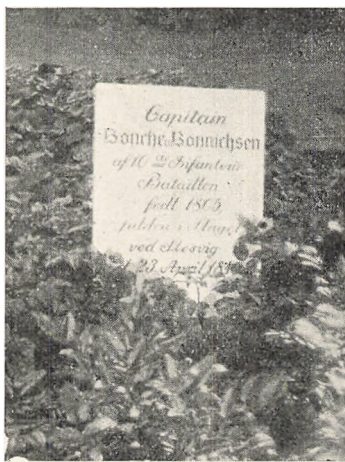 Capitain
Bonnichsen
af 10de Infanterie
Bataillon
født 1805
falden i Slaget
ved Slesvig
23 April